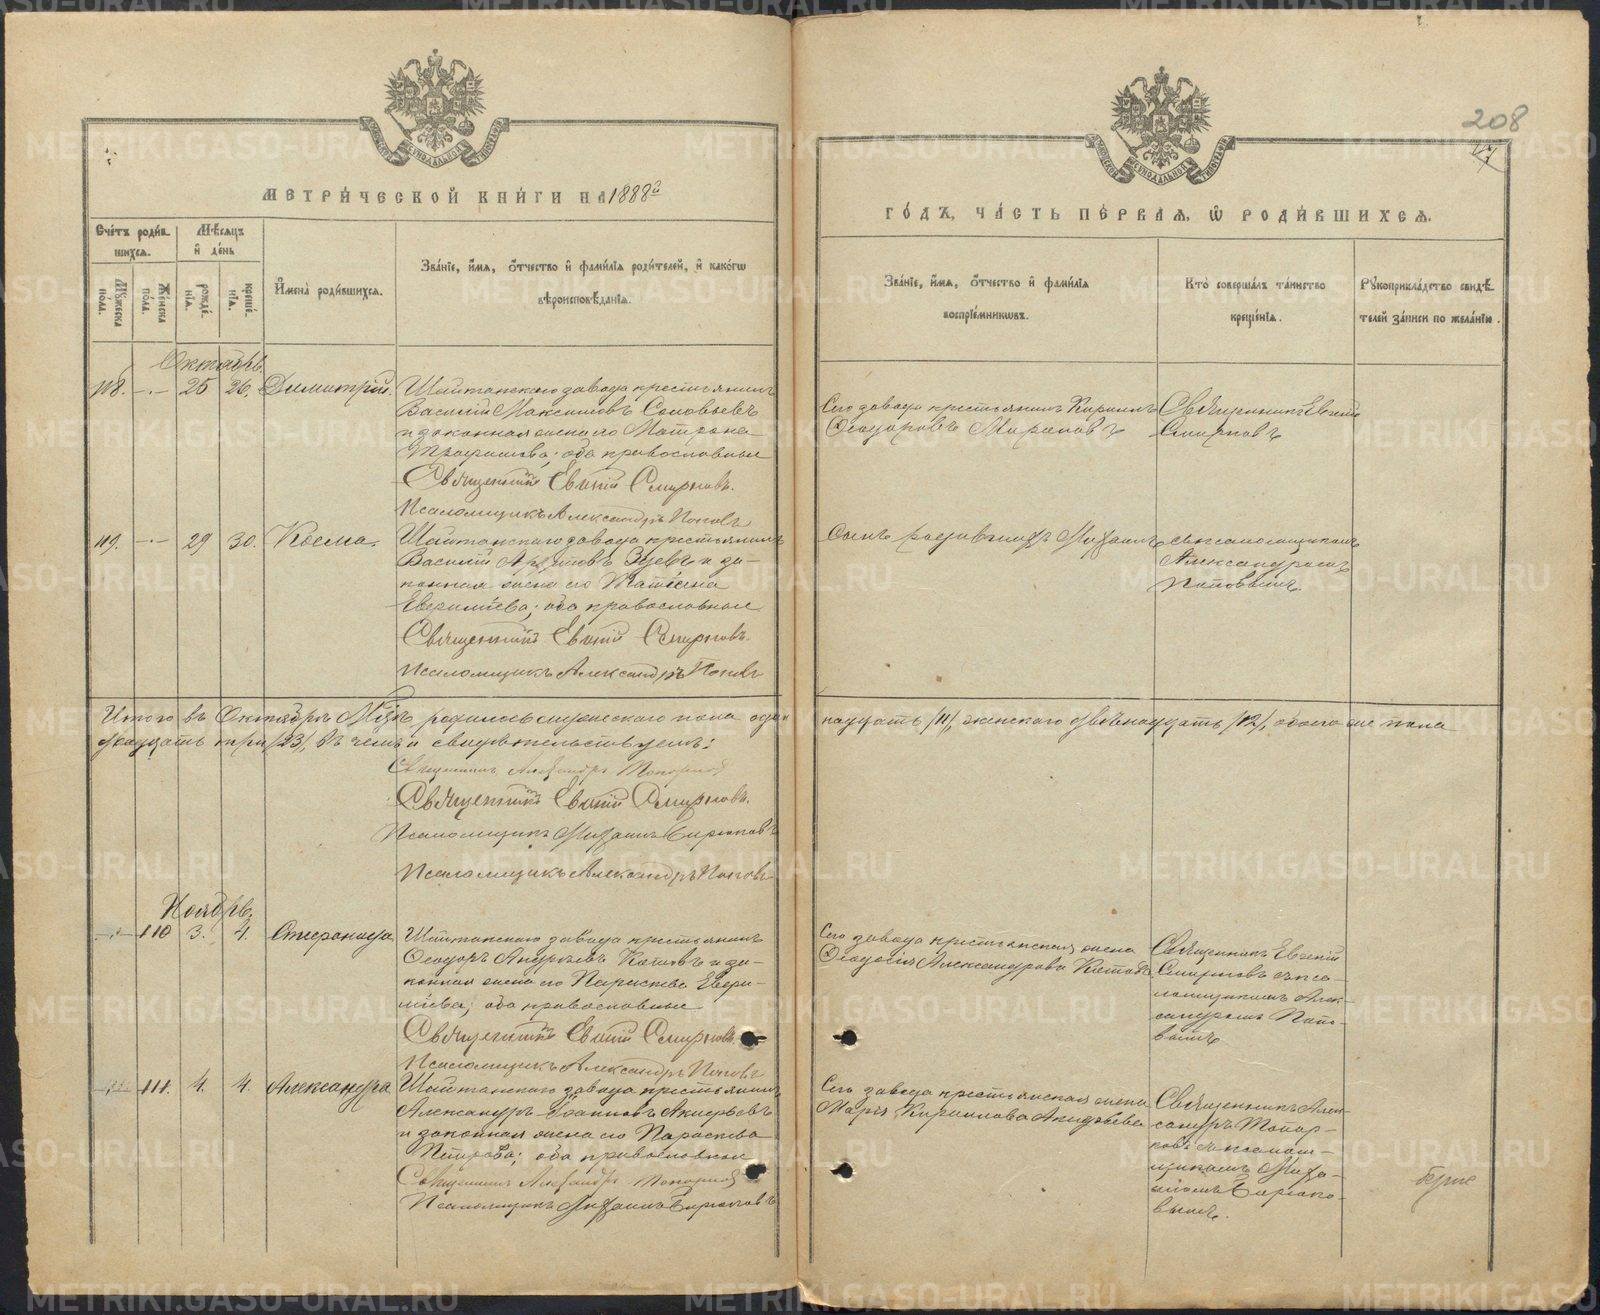 208
17
МЕТРИ́ЧЕСКОЙ КНИ́ГИ НА 1888й
ГО́ДЪ, ЧА́СТЬ ПЕ́РВАЯ, Ѽ РОДИ́ВШИХСЯ.
Сче́тъ роди́в
шихся.
Мѣ́сяцъ
и҆ де́нь
Мꙋ́жеска по́ла.
Же́нска по́ла.
рожде́нїѧ.
креще́нїѧ.
И҆мена̀ роди́вшихся.
Зва́нїе, и҆́мѧ, ѻ҆́тчество и҆ фами́лїѧ роди́телей, и҆ како́гѡ
вѣроисповѣ́данїѧ.
Зва́нїе, и҆́мѧ, ѻ҆́тчество и҆ фами́лїѧ
воспрїе́мникѡвъ.
Кто̀ соверша́лъ та́инство
креще́нїѧ.
Рꙋкоприкла́дство свидѣ́
телей за́писи по жела́нїю.
Октябрь.
118. -·- 25 26. Димитрій.
Шайтанскаго завода крестьянинъ
Василій Максимовъ Соловьевъ
и законная жена его Матрона
оба православные
Священникъ Евгеній Смирновъ.
Псаломщикъ Александръ Поповъ
Сего завода крестьянинъ Кириллъ
Ѳеодоровъ Мироновъ
Священникъ Евгеній
Смирновъ
119. -·- 29 30. Косма.
Шайтанскаго завода крестьянинъ
Василій Зуевъ и за-
конная жена его Татіана
Евфиміева; оба православные
Священникъ Евгеній Смирновъ.
Псаломщикъ Александръ Поповъ
Сынъ Михаилъ
съ псаломщикомъ
Александромъ
Поповымъ.
Итого въ Октябрѣ М҃цѣ родилось мужескаго пола один
надцать /11/, женскаго двѣнадцать /12/, обоего же пола
двадцать три /23/, въ чемъ и свидѣтельствуемъ:
Священникъ Александръ Топорковъ
Священникъ Евгеній Смирновъ.
Псаломщикъ Михаилъ Бирюковъ
Псаломщикъ Александръ Поповъ
Ноябрь.
-·- 110 3. 4. Стефанида
Шайтанскаго завода крестьянинъ
Ѳеодоръ Андреевъ Котовъ и за-
конная жена его Параскева Евфи-
міева; оба православные
Священникъ Евгеній Смирновъ.
Псаломщикъ Александръ Поповъ
Сего завода крестьянская жена
Ѳеодосія Александрова Котова
Священникъ Евгеній
Смирновъ съ пса-
ломщикомъ Алек-
сандромъ Попо-
вымъ
-·- 111. 4. 4. Александра
Шайтанскаго завода крестьянинъ
Александръ Іоанновъ Акинфіевъ
и законная жена его Параскева
Петрова; оба православные
Священникъ Александръ Топорковъ
Псаломщикъ Михаилъ Бирюковъ
Сего завода крестьянская жена
Марія Кириллова Акинфіева
Священникъ Алек-
сандръ Топор-
ковъ съ псалом-
щикомъ Миха-
иломъ Бирюко-
вымъ.